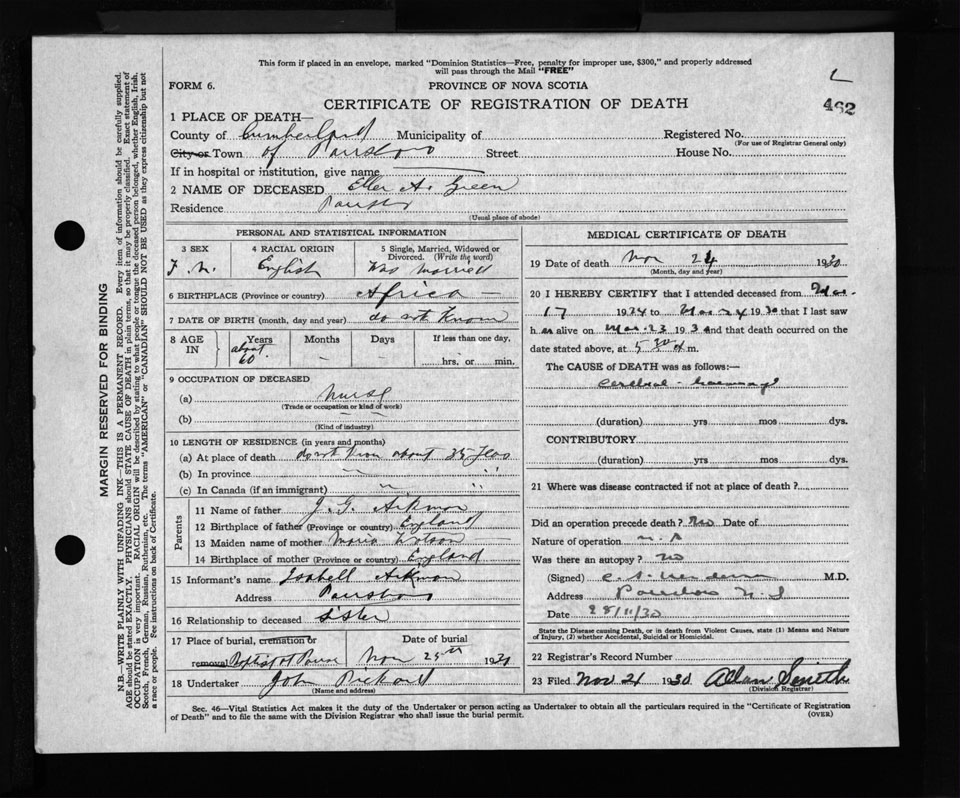 This form if placed in an envelope, marked "Dominion Statistics—Free, penalty for improper use, $300," and properly addressed
will pass through the Mail "FREE"
FORM 6.
PROVINCE OF NOVA SCOTIA
CERTIFICATE OF REGISTRATION OF DEATH
462
1 PLACE OF DEATH—
County of Cumberland Municipality of
Registered No.
(For use of Registrar General only)
City or Town of Parrsboro Street House No.
If in hospital or institution, give name
2 NAME OF DECEASED Ellen A. Green
Residence
(Usual place of abode)
PERSONAL AND STATISTICAL INFORMATION
3 SEX 4 RACIAL ORIGIN 5 Single, Married, Widowed or Divorced. (Write the word)
English Was married
6 BIRTHPLACE (Province or country) Africa
7 DATE OF BIRTH (month, day and year) do not Know
8 AGE IN Years Months Days If less than one day,
about 60 hrs. or min.
9 OCCUPATION OF DECEASED
(a) Nurse
(Trade or occupation or kind of work)
(b)
(Kind of industry)
10 LENGTH OF RESIDENCE (in years and months)
(a) At place of death do not Know about 25 Years
(b) In province " "
(c) In Canada (if an immigrant) " "
Parents
11 Name of father J. G. Aikman
12 Birthplace of father (Province or country) England
13 Maiden name of mother Maria
14 Birthplace of mother (Province or country) England
15 Informant's name Isabell Aikman
Address Parrsboro
16 Relationship to deceased Sister
17 Place of burial, cremation or removal Baptist at Date of burial Nov 25th 1930
18 Undertaker John Pickard
(Name and address)
MEDICAL CERTIFICATE OF DEATH
19 Date of death Nov 24 1930
(Month, day and year)
20 I HEREBY CERTIFY that I attended deceased from
17 to 1930 that I last saw
h alive on 23 1930 and that death occurred on
date stated above, at 5 30 m.
The CAUSE of DEATH was as follows:—
Cerebral
(duration) yrs mos dys.
CONTRIBUTORY
(duration) yrs mos dys.
21 Where was disease contracted if not at place of death?
Did an operation precede death? No Date of
Nature of operation
Was there an autopsy? No
(Signed) M.D.
Address Parrsboro N.S
Date 25/11/30
State the Disease causing Death, or in death from Violent Causes, state (1) Means and Nature
of Injury, (2) whether Accidental, Suicidal or Homicidal.
22 Registrar's Record Number
23 Filed Nov 21 1930 Allan Smith
(Division Registrar)
Sec. 46—Vital Statistics Act makes it the duty of the Undertaker or person acting as Undertaker to obtain all the particulars required in the "Certificate of Registration
of Death" and to file the same with the Division Registrar who shall issue the burial permit.
(OVER)
MARGIN RESERVED FOR BINDING
N.B.—WRITE PLAINLY WITH UNFADING INK—THIS IS A PERMANENT RECORD. Every item of information should be carefully supplied.
AGE should be stated EXACTLY. PHYSICIANS should STATE CAUSE OF DEATH in plain terms, so that it may be properly classified. Exact statement of
OCCUPATION is very important. RACIAL ORIGIN will be described by stating to what people or tongue the deceased person belonged, whether English, Irish,
Scotch, French, German, Russian, Ruthenian, etc. The terms "AMERICAN" or "CANADIAN" SHOULD NOT BE USED as they express citizenship but not
a race or people. See instructions on back of Certificate.